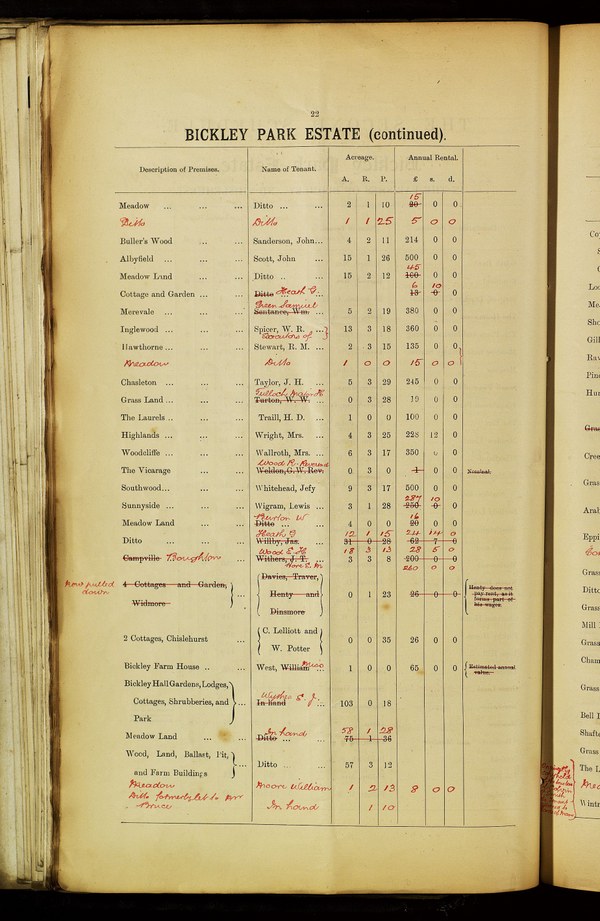 22
BICKLEY PARK ESTATE (continued).
Description of Premises. Name of Tenant. Acreage. Annual Rental.
A. R. P. £ s. d.
15
Meadow ... ... ... Ditto ... ... 2 1 10 20 0 0
Ditto Ditto 1 1 25 5 0 0
Buller's Wood ... ... Sanderson, John... 4 2 11 214 0 0
Albyfield ... ... ... Scott, John ... 15 1 26 500 0 0
45
Meadow Land ... ... Ditto .. ... 15 2 12 100 0 0
6 10
Cottage and Garden ... ... Ditto Heash G. ... 13 0 0
Green Samuel
Merevale ... ... ... Sentance, Wm. ... 5 2 19 380 0 0
Inglewood ... ... ... Spicer, W. R. ... 13 3 18 360 0 0
Executors of
Hawthorne... ... ... Stewart, R. M. ... 2 3 15 135 0 0
Meadow Ditto 1 0 0 15 0 0
Chasleton ... ... ... Taylor, J. H. ... 5 3 29 245 0 0
Tulloch, Major H.
Grass Land ... ... ... Turton, W. W. ... 0 3 28 19 0 0
The Laurels .. ... ... Traill, H. D. ... 1 0 0 100 0 0
Highlands ... ... ... Wright, Mrs. ... 4 3 25 228 12 0
Woodcliffe ... ... ... Wallroth, Mrs. ... 6 3 17 350 0 0
Wood R. Reverend
The Vicarage ... ... Weldon, G. W. Rev. 0 3 0 1 0 0 Nominal.
Southwood... ... ... Whitehead, Jefy 9 3 17 500 0 0
287 10
Sunnyside ... ... ... Wigram, Lewis ... 3 1 28 250 0 0
Burton W 16
Meadow Land ... ... Ditto ... ... 4 0 0 20 0 0
Heash G 12 1 15 24 14 0
Ditto ... ... ... Willby, Jas. ... 31 0 28 62 7 0
Wood E. H. 18 3 13 28 5 0
Campville Boughton ... Withers, J. T. ... 3 3 8 200 0 0
260 0 0
Now pulled down
4 Cottages and Garden, Widmore ... Davies, Traver, Henty and Dinsmore 0 1 23 26 0 0 Henty does not pay rent, as it forms part of his wages.
2 Cottages, Chislehurst ... C. Lelliott and W. Potter 0 0 35 26 0 0
Bickley Farm House .. ... West, William Miss ... 1 0 0 65 0 0 Estimated annual value.
Bickley Hall Gardens, Lodges,
Cottages, Shrubberies, and ... In hand ... 103 0 18
Park
In hand 58 1 28
Meadow Land ... ... Ditto ... ... 75 1 36
Wood, Land, Ballast, Pit,
and Farm Buildings ... Ditto ... ... 57 3 12
Meadow Moore William 1 2 13 8 0 0
Ditto formerly let to Mr
Bruce In hand 1 10